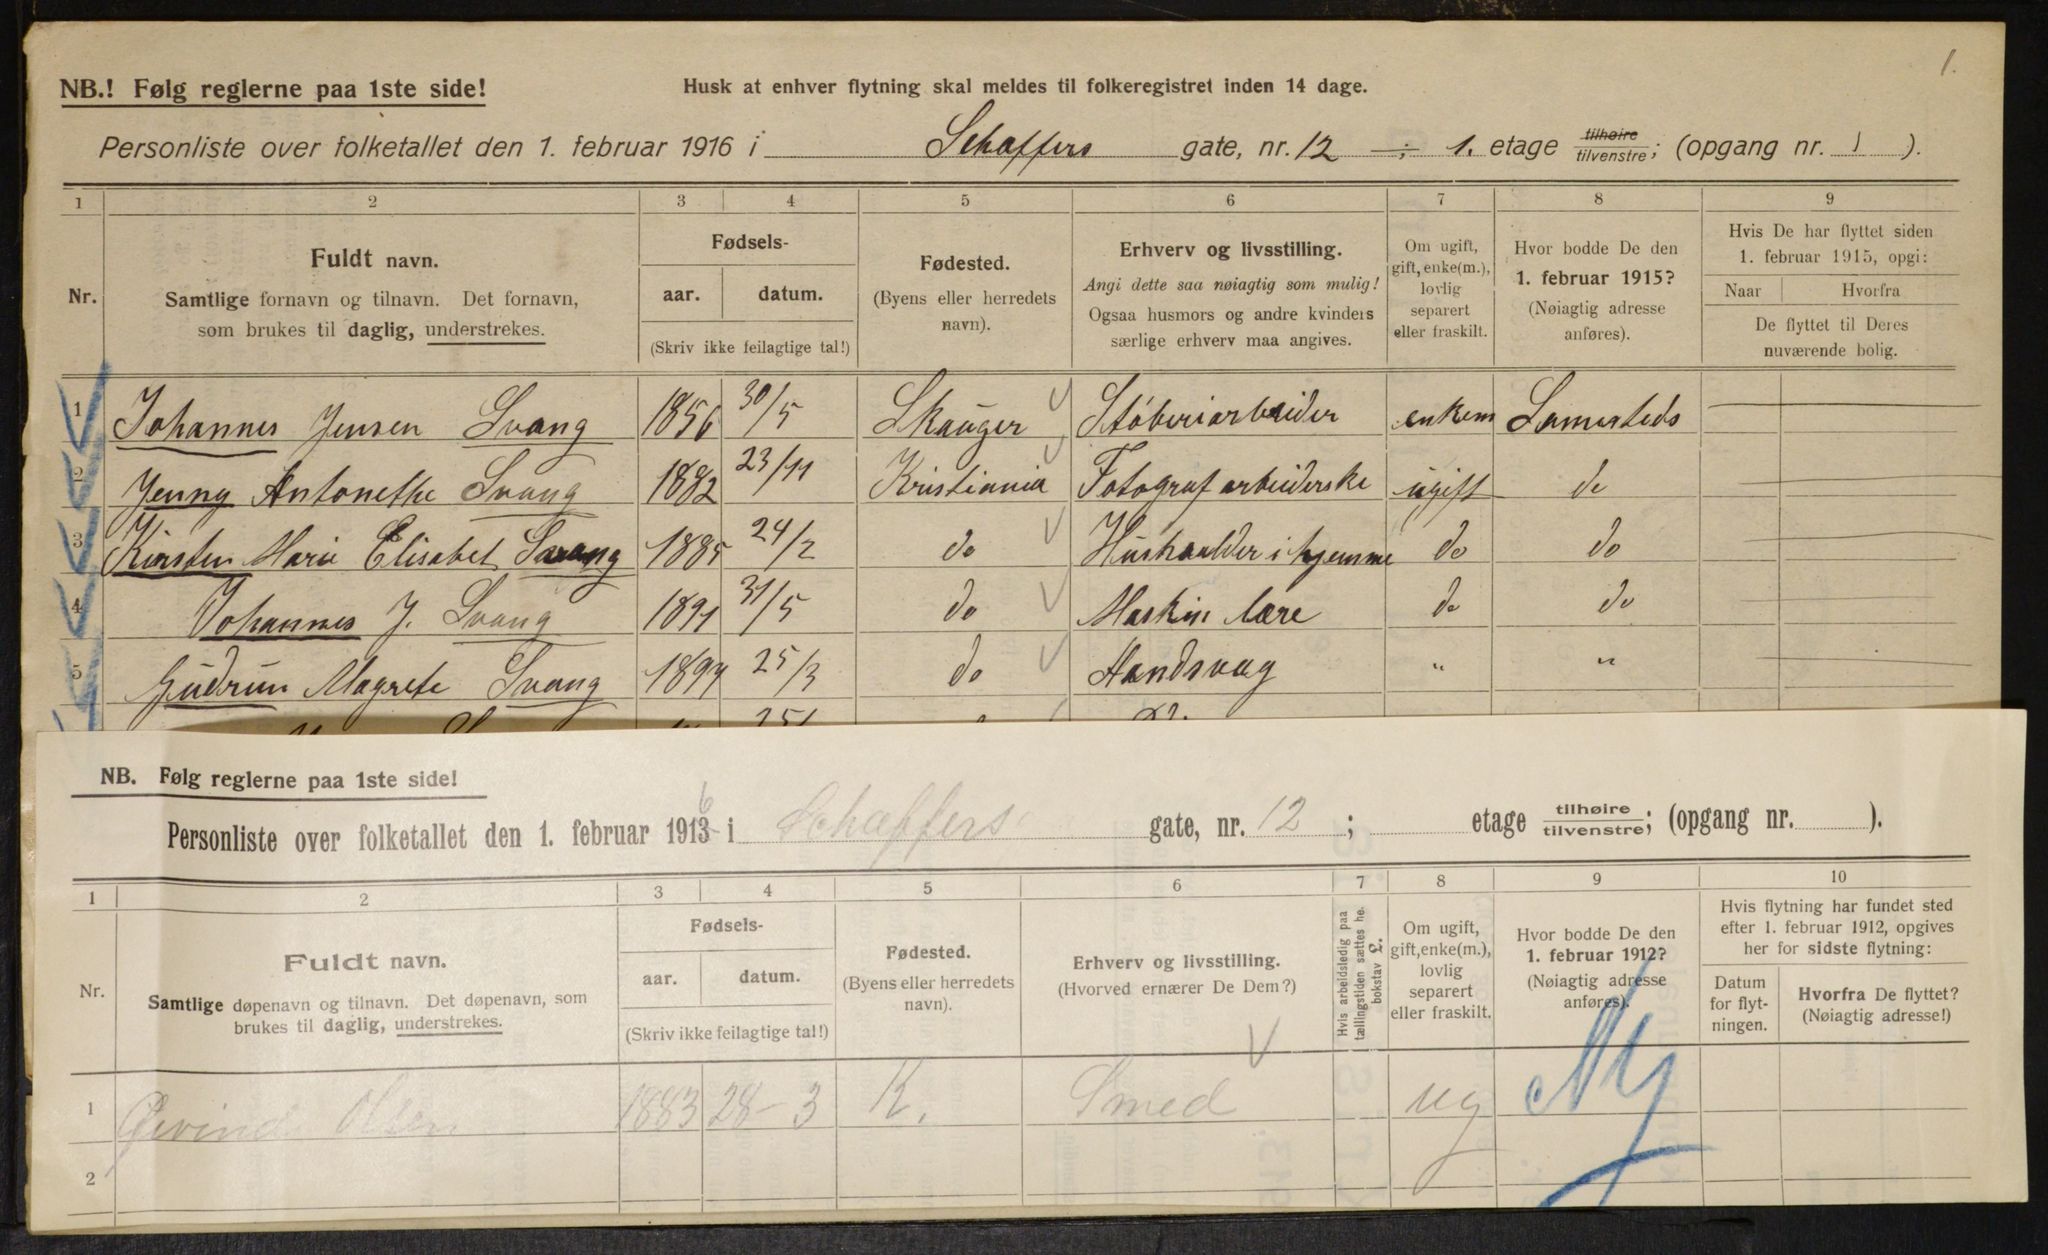 1.
NB.! Følg reglerne paa 1ste side!
Husk at enhver flytning skal meldes til folkeregistret inden 14 dage.
Personliste over folketallet den 1. februar 1916 i Schaffers gate, nr. 12 ; 1. etage tilhøire tilvenstre; (opgang nr. 1 ).
1 2 3 4 5 6 7 8 9
Nr.
Fuldt navn.
Samtlige fornavn og tilnavn. Det fornavn,
som brukes til daglig, understrekes.
Fødsels-
aar. datum.
(Skriv ikke feilagtige tal!)
Fødested.
(Byens eller herredets
navn).
Erhverv og livsstilling.
Angi dette saa nøiagtig som mulig!
Ogsaa husmors og andre kvinders
særlige erhverv maa angives.
Om ugift,
gift, enke(m.),
lovlig
separert
eller fraskilt.
Hvor bodde De den
1. februar 1915?
(Nøiagtig adresse
anføres).
Hvis De har flyttet siden
1. februar 1915, opgi:
Naar Hvorfra
De flyttet til Deres
nuværende bolig.
1 Johannes Jensen Svang 1856 30/5 Skauger Støberiarbeider enkem Samesteds
2 Jenny Antonette Svang 1882 23/11 Kristiania Fotografarbeiderske ugift do
3 Kirsten Marie Elisabet Svang 1885 24/2 do Husholder i hjemme do do
4 Johannes J. Svang 1891 31/5 do Maskin lære do do
5 Gudrun Magrete Svang 1897 25/3 do Handsvag " "
NB. Følg reglerne paa 1ste side!
Personliste over folketallet den 1. februar 1913 6 i Schaffers gate, nr. 12 ; etage tilhøire tilvenstre; (opgang nr. ).
1 2 3 4 5 6 7 8 9 10
Nr.
Fuldt navn.
Samtlige døpenavn og tilnavn. Det døpenavn, som
brukes til daglig, understrekes.
Fødsels-
aar. datum.
(Skriv ikke feilagtige tal!)
Fødested.
(Byens eller herredets
navn).
Erhverv og livsstilling.
(Hvorved ernærer De Dem?)
Hvis arbeidsledig paa
tællingstiden sættes he.
bokstav L.
Om ugift,
gift, enke(m.),
lovlig
separert
eller fraskilt.
Hvor bodde De den
1. februar 1912?
(Nøiagtig adresse
anføres).
Hvis flytning har fundet sted
efter 1. februar 1912, opgives
her for sidste flytning:
Datum
for flyt-
ningen.
Hvorfra De flyttet?
(Nøiagtig adresse!)
1 Øivind Olsen 1883 28-3 K. Smed ug Ny
2